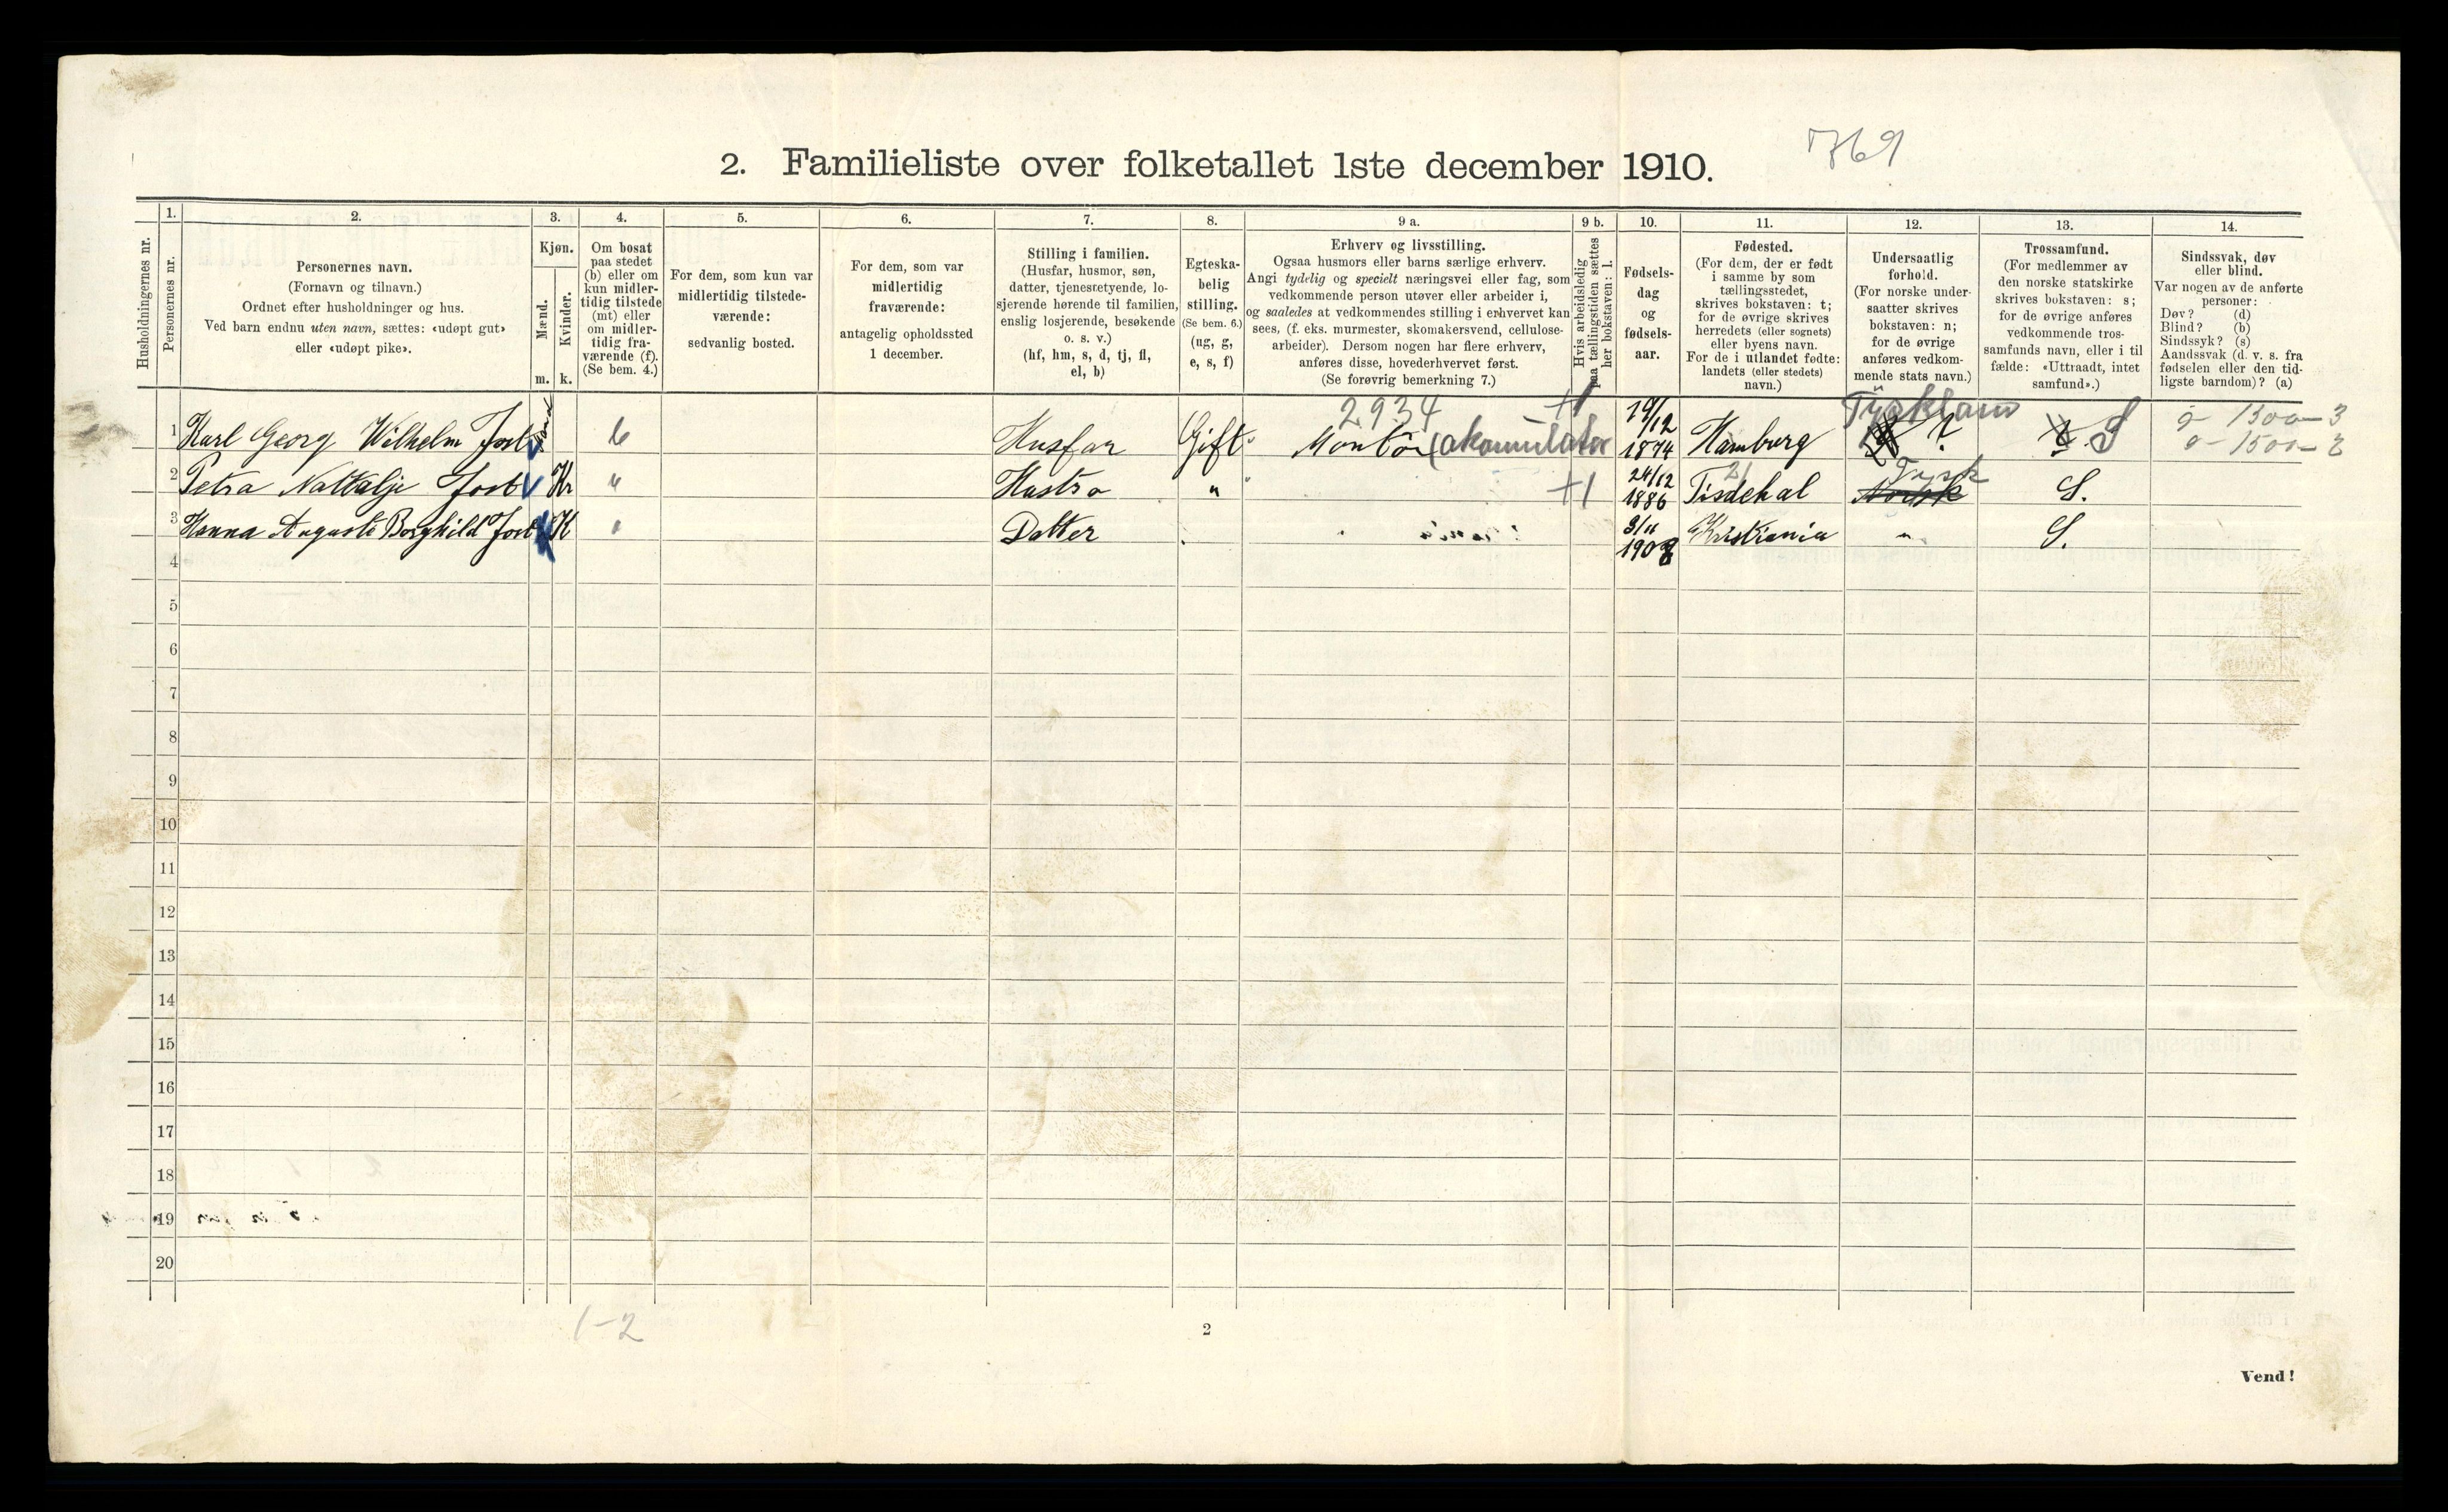 769
2. Familieliste over folketallet 1ste december 1910.
Husholdningernes nr.
1.
Personernes nr.
2.
Personernes navn.
(Fornavn og tilnavn.)
Ordnet efter husholdninger og hus.
Ved barn endnu uten navn, sættes: «udøpt gut»
eller «udøpt pike».
3.
Kjøn.
Mænd.
Kvinder.
m. k.
4.
Om bosat
paa stedet
(b) eller om
kun midler-
tidig tilstede
(mt) eller
om midler-
tidig fra-
værende (f).
(Se bem. 4.)
5.
For dem, som kun var
midlertidig tilstede-
værende:
sedvanlig bosted.
6.
For dem, som var
midlertidig
fraværende:
antagelig opholdssted
1 december.
7.
Stilling i familien.
(Husfar, husmor, søn,
datter, tjenestetyende, lo-
sjerende hørende til familien,
enslig losjerende, besøkende
o. s. v.)
(hf, hm, s, d, tj, fl,
el, b)
8.
Egteska-
belig
stilling.
(Se bem. 6.)
(ug, g,
e, s, f)
9 a.
Erhverv og livsstilling.
Ogsaa husmors eller barns særlige erhverv.
Angi tydelig og specielt næringsvei eller fag, som
vedkommende person utøver eller arbeider i,
og saaledes at vedkommendes stilling i erhvervet kan
sees, (f. eks. murmester, skomakersvend, cellulose-
arbeider). Dersom nogen har flere erhverv,
anføres disse, hovederhvervet først.
(Se forøvrig bemerkning 7.)
9 b.
Hvis arbeidsledig
paa tællingstiden sættes
her bokstaven: l.
10.
Fødsels-
dag
og
fødsels-
aar.
11.
Fødested.
(For dem, der er født
i samme by som
tællingsstedet,
skrives bokstaven: t;
for de øvrige skrives
herredets (eller sognets)
eller byens navn.
For de i utlandet fødte:
landets (eller stedets)
navn.)
12.
Undersaatlig
forhold.
(For norske under-
saatter skrives
bokstaven: n;
for de øvrige
anføres vedkom-
mende stats navn.)
13.
Trossamfund.
(For medlemmer av
den norske statskirke
skrives bokstaven: s;
for de øvrige anføres
vedkommende tros-
samfunds navn, eller i til
fælde: «Uttraadt, intet
samfund».)
14.
Sindssvak, døv
eller blind.
Var nogen av de anførte
personer:
Døv? (d)
Blind? (b)
Sindssyk? (s)
Aandssvak (d. v. s. fra
fødselen eller den tid-
ligste barndom)? (a)
2934 +1 19/12 Tyskland ö - 1300 - 3
1 Karl Georg Wilhelm Jost b Husfar Gift Montör (akumulator 1874 Hamburg ? S ö - 1500 - 2
2 Petra Nattalje Jost Kv " Hustro " +1 24/12 1886 Tisdehal Tysk Norsk S.
3 Hanna Auguste Borghild Jost K " Datter 3/11 1908 Kristiania " S.
4
5
6
7
8
9
10
11
12
13
14
15
16
17
18
19
20
1-2
2
Vend!